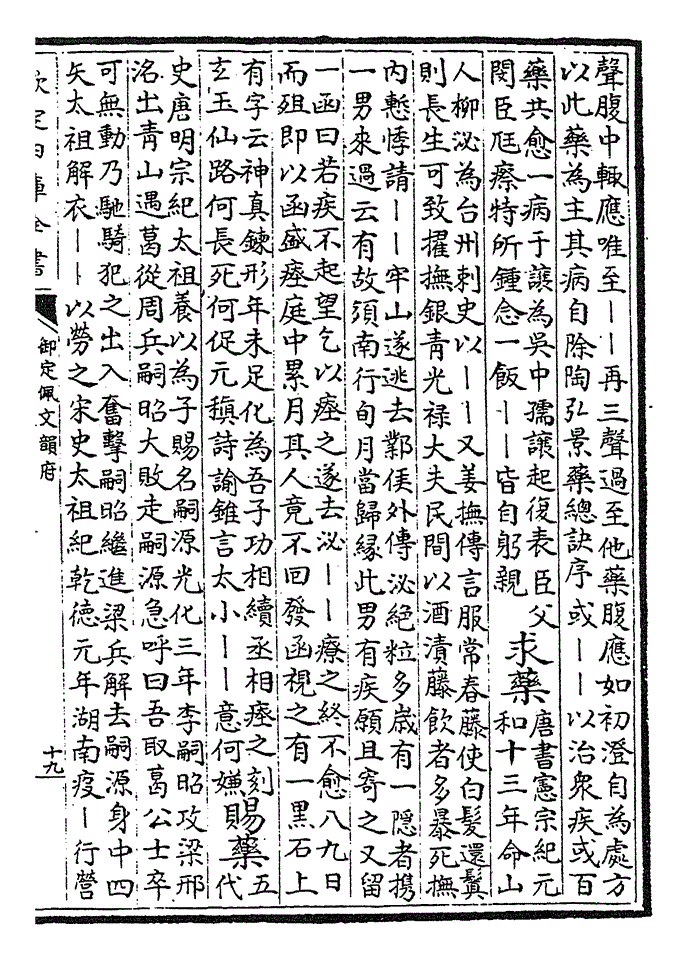 聲腹中輙應唯至丨丨再三聲過至他藥腹應如初澄自為處方
以此藥為主其病自除陶弘景藥總訣序或丨丨以治衆疾或百
藥共愈一病于讓為吳中孺讓起復表臣父
閔臣尫瘵特所鍾念一飯丨丨皆自躬親
求藥
唐書憲宗紀元
和十三年命山
人柳泌為台州刺史以丨丨又姜撫傳言服常春藤使白髮還鬒
則長生可致擢撫銀青光禄大夫民間以酒漬藤飲者多暴死撫
内慙悸請丨丨牢山遂逃去鄴侯外傳泌絶粒多歳有一隠者携
一男來過云有故須南行旬月當歸縁此男有疾願且寄之又留
一函曰若疾不起望乞以瘞之遂去泌丨丨療之終不愈八九日
而殂即以函盛瘞庭中累月其人竟不回發函視之有一黒石上
有字云神真錬形年未足化為吾子功相續丞相瘞之刻
玄玉仙路何長死何促元稹詩諭錐言太小丨丨意何嫌
賜藥
五
代
史唐明宗紀太祖養以為子賜名嗣源光化三年李嗣昭攻梁邢
洺出青山遇葛從周兵嗣昭大敗走嗣源急呼曰吾取葛公士卒
可無動乃馳騎犯之出入奮擊嗣昭繼進梁兵解去嗣源身中四
矢太祖解衣丨丨以勞之宋史太祖紀乾德元年湖南疫丨行營
欽定四庫全書
御定佩文韻府
十九